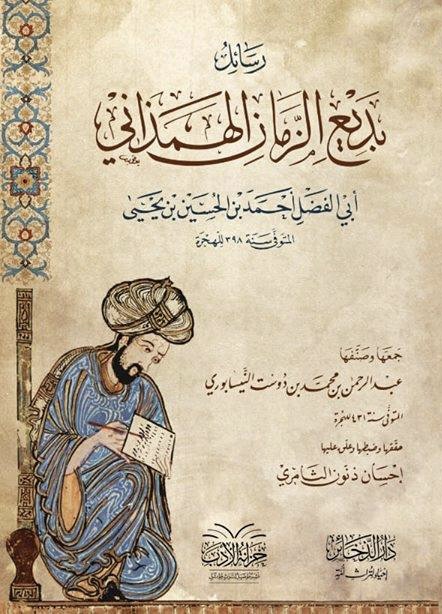 رسائل
بديع الزمان الهمذاني
أبي الفضل أحمد بن الحسين بن يحيى
المتوفى سنة ٣٩٨ للهجرة
جمعها وصنفها
عبد الرحمن بن محمد بن دوست النيسابوري
المتوفى سنة ٤٣١ للهجرة
حققها وضبطها وعلق عليها
إحسان ذنون الثامري
دار الذخائر
خزانة الأدب